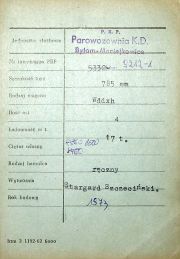 P. K. P.
Jednostka służbowa Parowozownia K.D.
Bytom-Karb
Nr inwentarza PKP 5330 9212-1
Szerokość toru 785 mm
Rodzaj wagonu Wddxh
Ilość osi 4
Ładowność w t. 17 t.
Ciężar własny
Rodzaj hamulca ręczny
Wytwórnia Stargard Szczeciński.
Rok budowy 1973